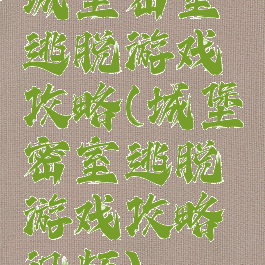 城堡密室
逃脱游戏
攻略(城堡
密室逃脱
游戏攻略
视频)